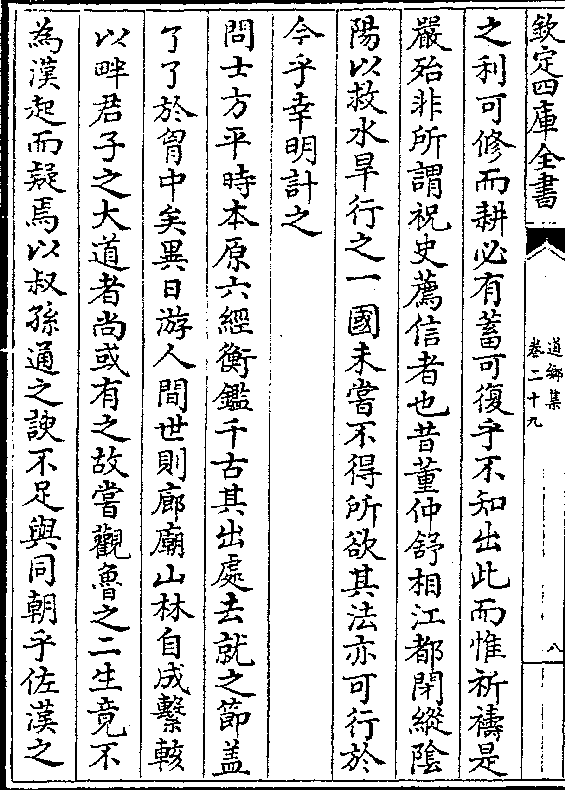 欽定四庫全書
道鄉集
卷二十九
八
之利可修而耕必有蓄可復乎不知出此而惟祈禱是
嚴殆非所謂祝史薦信者也昔董仲舒相江都閉縱陰
陽以救水旱行之一國未嘗不得所欲其法亦可行於
今乎幸明計之
問士方平時本原六經衡鑑千古其出處去就之節盖
了了於胷中矣異日游人間世則廊廟山林自成繫輆
以畔君子之大道者尚或有之故嘗觀魯之二生竟不
為漢起而疑焉以叔孫通之諛不足與同朝乎佐漢之